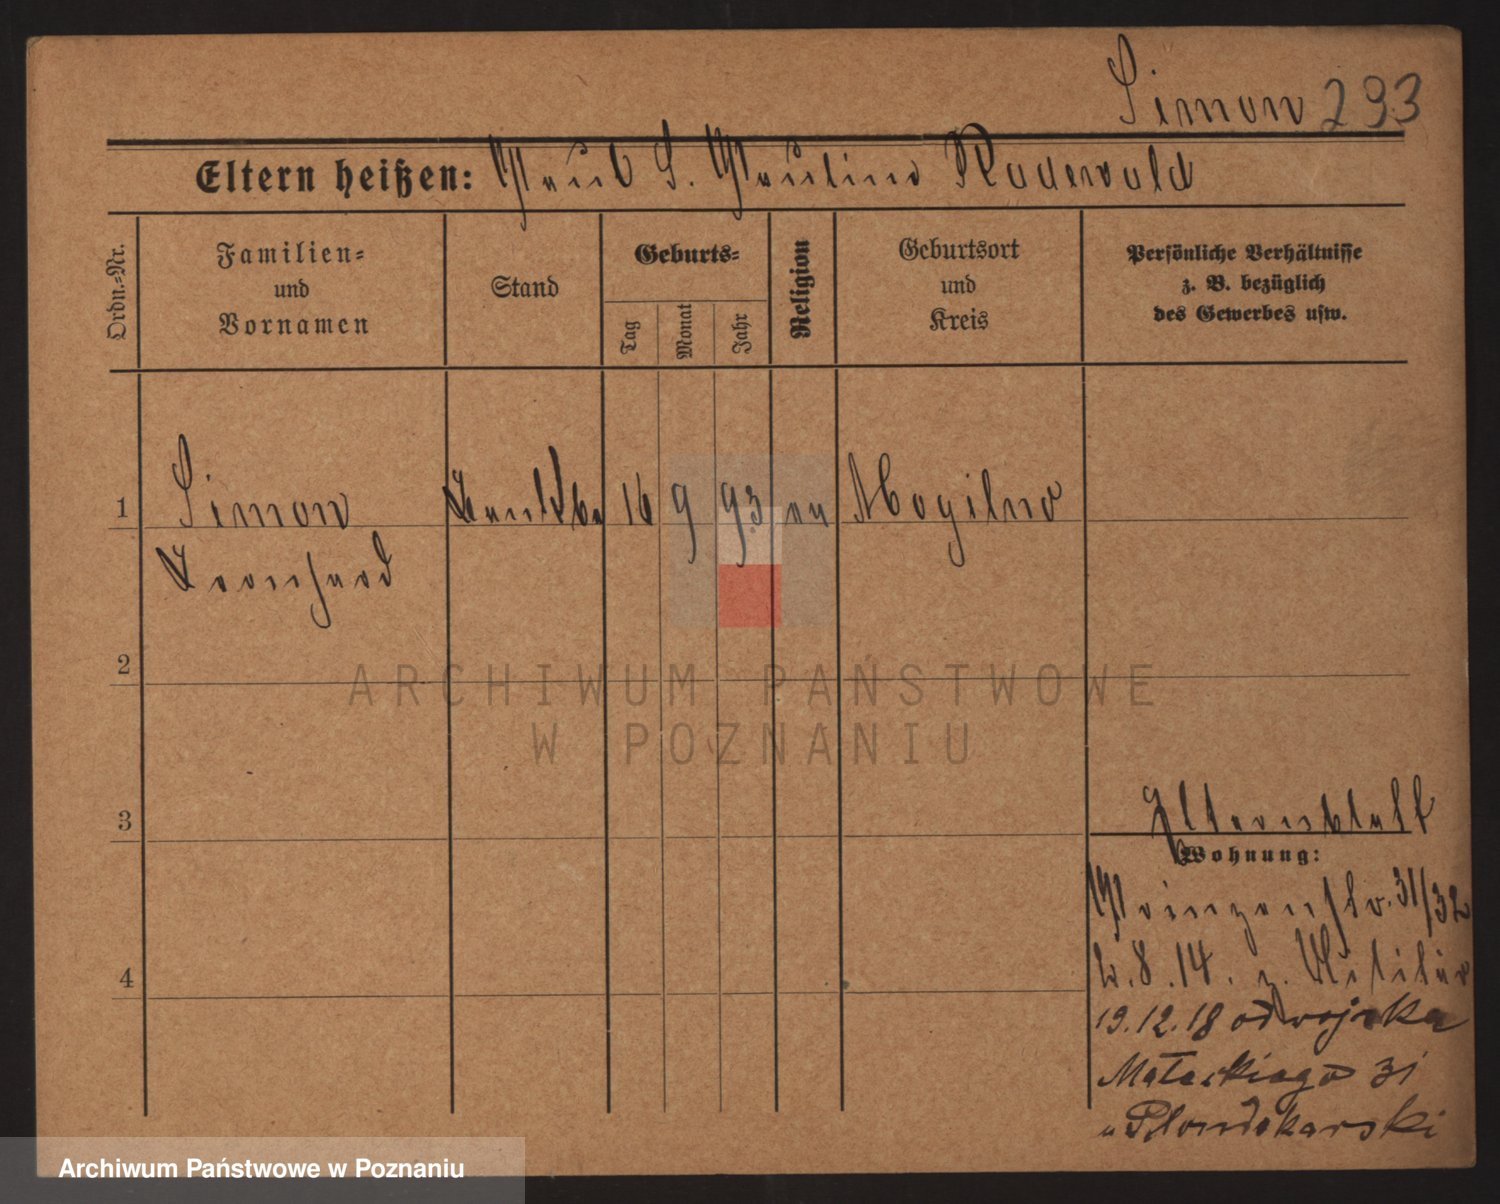 Simon 293
Eltern heißen: Paul S. Pauline Radewald
Ordn.-Nr.
Familien-
und
Vornamen
Stand
Geburts-
Tag
Monat
Jahr
Religion
Geburtsort
und
Kreis
Persönliche Verhältnisse
z. B. bezüglich
des Gewerbes usw.
1 Simon 16 9 93 ev Mogilno
Leonhard
2
ARCHIWUM PAŃSTWOWE
W POZNANIU
3
Elternblatt
Wohnung:
31/32
4
2.8.14. z. Militär
19.12.18 od wojska
Małeckiego 31
u
Archiwum Państwowe w Poznaniu